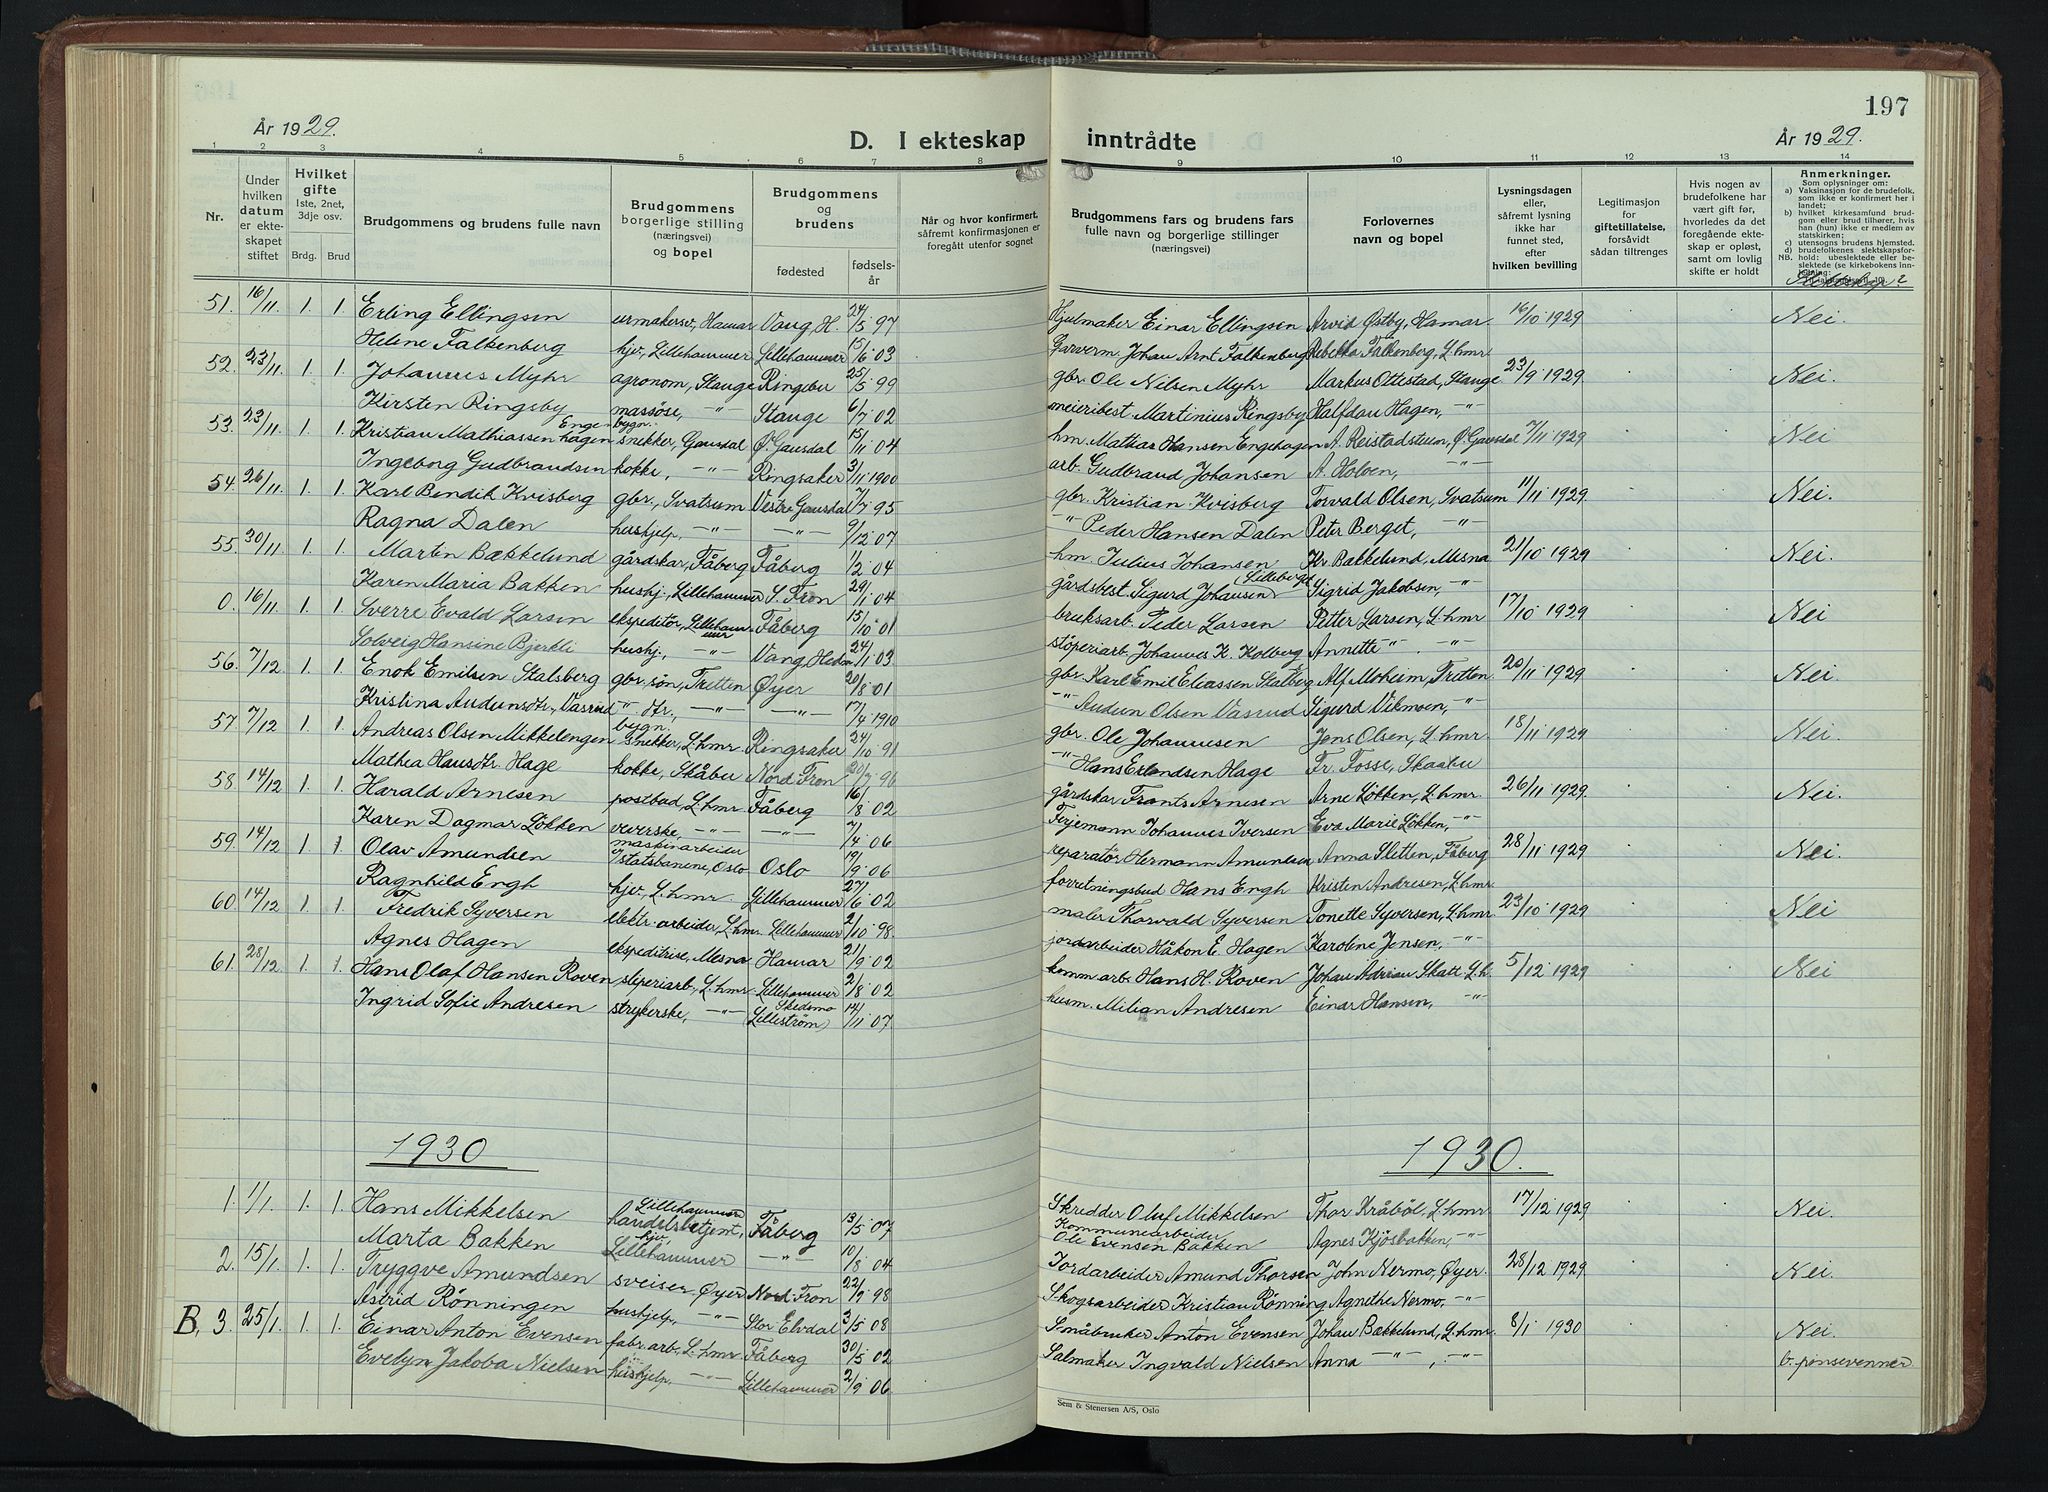 197
År 1929.
D. I ekteskap inntrådte
År 1929.
1 2 3 4 5 6 7 8 9 10 11 12 13 14
Nr.
Under hvilken datum er ekteskapet stiftet
Hvilket gifte 1ste, 2net, 3dje osv.
Brdg. Brud
Brudgommens og brudens fulle navn
Brudgommens borgerlige stilling (næringsvei) og bopel
Brudgommens og brudens
fødested fødselsår
Når og hvor konfirmert, såfremt konfirmasjonen er foregått utenfor sognet
Brudgommens fars og brudens fars fulle navn og borgerlige stillinger (næringsvei)
Forlovernes navn og bopel
Lysningsdagen eller, såfremt lysning ikke har funnet sted, efter hvilken bevilling
Legitimasjon for giftetillatelse, forsåvidt sådan tiltrenges
Hvis nogen av brudefolkene har vært gift før, hvorledes da det foregående ekteskap er opløst, samt om lovlig skifte er holdt
Anmerkninger.
Som oplysninger om:
a) Vaksinasjon for de brudefolk, som ikke er konfirmert her i landet;
b) hvilket kirkesamfund brudgom eller brud tilhører, hvis han (hun) ikke er medlem av statskirken;
c) utensogns brudens hjemsted.
d) brudefolkenes slektskapsforhold: ubeslektede eller beslektede
51. 16/11 1. 1. Erling Ellingsen urmakersv., Hamar Vang, H. 24/5 97 Hjulmaker Einar Ellingsen Arvid Østby, Hamar. 16/10 1929 Nei.
Helene Falkenberg hjv., Lillehammer Lillehammer 15/6 03 Garverm. Johan Arnt Falkenberg Rebekka Falkenberg, L.hmr
52. 23/11. 1. 1. Johannes Myhr agronom, Stange Ringebu 25/5 99 gbr. Ole Nilsen Myhr Markus Ottestad, Stange 23/9 1929 Nei.
Kirsten Ringsby massøse, -"- Stange 6/7 02 meieribest. Martinius Ringsby Halfdan Hagen, -"-
53. 23/11. 1. 1. Kristian Mathiassen Engehagen bygn. snekker, Gausdal Ø. Gausdal 15/11 04 hm. Mathias Hansen Engehagen A. Reistadstuen, Ø. Gausdal 7/11 1929 Nei
Ingeborg Gudbrandsen kokke, -"- Ringsaker 3/11 1900 arb. Gudbrand Johansen A. Holven, -"-
54. 26/11. 1. 1. Karl Bendik Kvisberg gbr., Svatsum Vestre Gausdal 7/7 95 gbr. Kristian Kvisberg Torvald Olsen, Svatsum 11/11 1929 Nei.
Ragna Dalen hushjelp, -"- -"- 9/12 07 -"- Peder Hansen Dalen Peter Berget, -"-
55. 30/11. 1. 1. Martin Bækkelund gårdskar, Fåberg Fåberg 1/2 04 hm Julius Johansen Kr. Bakkelund, Mesna 21/10 1929 Nei.
Karen Maria Bakken hushj., Lillehammer S. Fron 29/1 04 gårdsbest. Sigurd Johansen (Lilleberget) Sigrid Jakobsen, -"-
0. 16/11 1. 1. Sverre Evald Larsen ekspeditør, Lillehammer Fåberg 15/10 01 bruksarb. Peder Larsen Petter Larsen, L.hmr 17/10 1929 Nei
Solveig Hansine Bjerkli hushj., -"- Vang, Hedm 24/1 03. støperiarb. Johannes K. Kolberg Annette -"- -"-
56. 7/12 1. 1. Enok Emilsen Stalsberg gbr.søn, Tretten Øyer 20/8 01 gbr. Karl Emil Eliassen Stalberg Alf Moheim, Tretten 20/11 1929 Nei.
Kristina Audunsdtr. Vasrud -"- dtr., -"- -"- 17/4 1910 -"- Audun Olsen Vasrud Sigurd Vikmoen, -"-
57. 7/12 1. 1. Andreas Olsen Mikkelengen bygn. snekker, L.hmr. Ringsaker 24/10 91 gbr. Ole Johannesen Jens Olsen, L.hmr 18/11 1929 Nei.
Mathea Hansdtr. Hage kokke, Skåbu Nord-Fron 20/7 96 -"- Hans Erlandsen Hage Fr. Fosse, Skaabu
58. 14/12 1. 1. Harald Arnesen postbud, L.hmr. Fåberg 16/8 02 gårdskar Frants Arnesen Arne Løkken, L.hmr. 26/11 1929. Nei.
Karen Dagmar Løkken veverske, -"- -"- 7/4 06 Ferjemann Johannes Iversen Eva Marie Løkken, -"-
59. 14/12 1. 1. Olav Amundsen maskinarbeider v/statsbanene, Oslo Oslo 19/9 06 reparatør Hermann Amundsen Anna Sletten, Fåberg 28/11 1929 Nei.
Ragnhild Engh hjv., L.hmr. Lillehammer 27/6 02 forretningsbud Hans Engh Kristen Andresen, L.hmr.
60. 14/12 1. 1. Fredrik Syversen elektr. arbeider, L.hmr. Lillehammer 2/10 98. maler Thorvald Syversen Tonette Syversen, L.hmr 23/10 1929 Nei
Agnes Hagen ekspeditrise, Mesna Hamar 21/9 02 jordarbeider Håkon E. Hagen Karoline Jensen, -"-
61. 28/12. 1. 1. Hans Olaf Hansen Roven sliperiarb., L.hmr. Lillehammer 2/8 02 komm.arb. Hans H. Roven Johan Adrian Skatt L.h. 5/12 1929 Nei
Ingrid Sofie Andresen strykerske, -"- Skedsmo (Lilleström) 14/11 07 husm. Milian Andresen Einar Hansen, -"-
1930 1930.
1. 1/1. 1. 1. Hans Mikkelsen Lillehammer handelsbetjent, Fåberg 13/5 07 Skredder Oluf Mikkelsen Thor Kråböl, L.hmr 17/12 1929 Nei.
Marta Bakken hjv., Lillehammer -"- 10/8 04 Kommunearbeider Ole Evensen Bakken Agnes Kjösbakken, -"-
2. 15/1. 1. 1. Tryggve Amundsen sveiser Øyer Nord-Fron 22/9 98 Jordarbeider Amund Thorsen John Nermo, Øyer. 28/12 1929 Nei.
Astrid Rönningen hushjelp, -"- Stor Elvdal 3/5 08 Skogsarbeider Kristian Rønning Agnethe Nermo, -"-
B, 3. 25/1. 1. 1. Einar Anton Evensen fabr.arb., L.hmr Fåberg 30/5 02 Småbruker Anton Evensen Johan Bækkelund, L.hmr. 8/1 1930 Nei.
Evelyn Jakoba Nielsen hushjelp, -"- Lillehammer 2/9 06 Salmaker Ingvald Nielsen Anna -"-, -"- b. pinsevenner
Sem & Stenersen A/S, Oslo